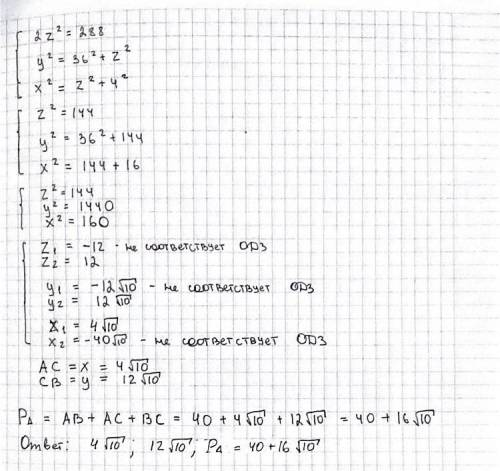 2z² = 288
y² = 36² + z²
x² = z² + 4²
z² = 144
y² = 36² + 144
x² = 144 + 16
z² = 144
y² = 1440
x² = 160
z₁ = -12 - не соответствует ОДЗ
z₂ = 12
y₁ = -12√10 - не соответствует ОДЗ
y₂ = 12√10
x₁ = 4√10
x₂ = -40√10 - не соответствует ОДЗ
AC = x = 4√10
CB = y = 12√10
P△ = AB + AC + BC = 40 + 4√10 + 12√10 = 40 + 16√10
Ответ: 4√10; 12√10; P△ = 40 + 16√10